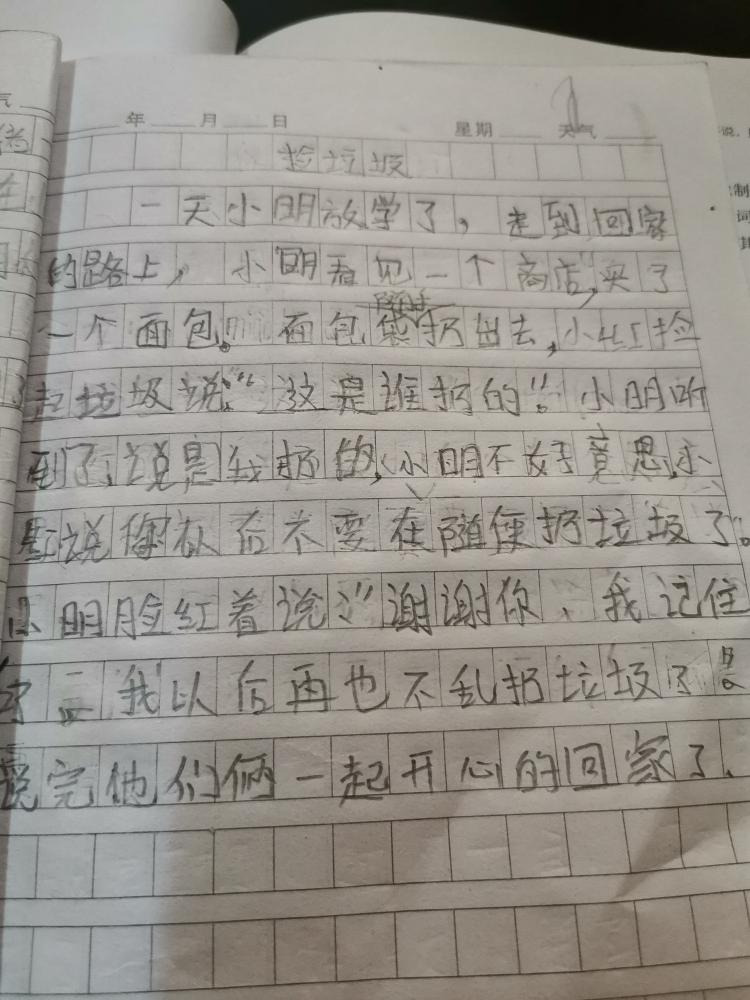 年 月 日 星期 天气
捡垃圾
一天小明放学了，走到回家
的路上，小明看见一个商店，买了
一个面包。面包袋随手扔出去，小红捡
起垃圾说：“这是谁扔的”。小明听
到了，说是我扔的，小明不好意思，小
红说你以后不要在随便扔垃圾了。
小明脸红着说：“谢谢你、我记住
了 我以后再也不乱扔垃圾了
说完他们俩一起开心的回家了.